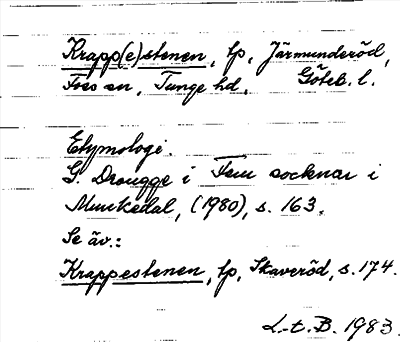 Krapp(e)stenen, lp, Järmunderöd,
Foss sn, Tunge hd. Göteb. l.
Etymologi.
G. Drougge i Fem socknar i
Munkedal, (1980), s. 163.
Se äv.:
Krappestenen, lp, Skaveröd, s. 174.
L-t. B. 1983.